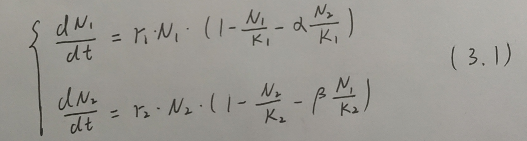 dN₁/dt = r₁·N₁·(1-N₁/K₁-αN₂/K₁)
(3.1)
dN₂/dt = r₂·N₂·(1-N₂/K₂-βN₁/K₂)